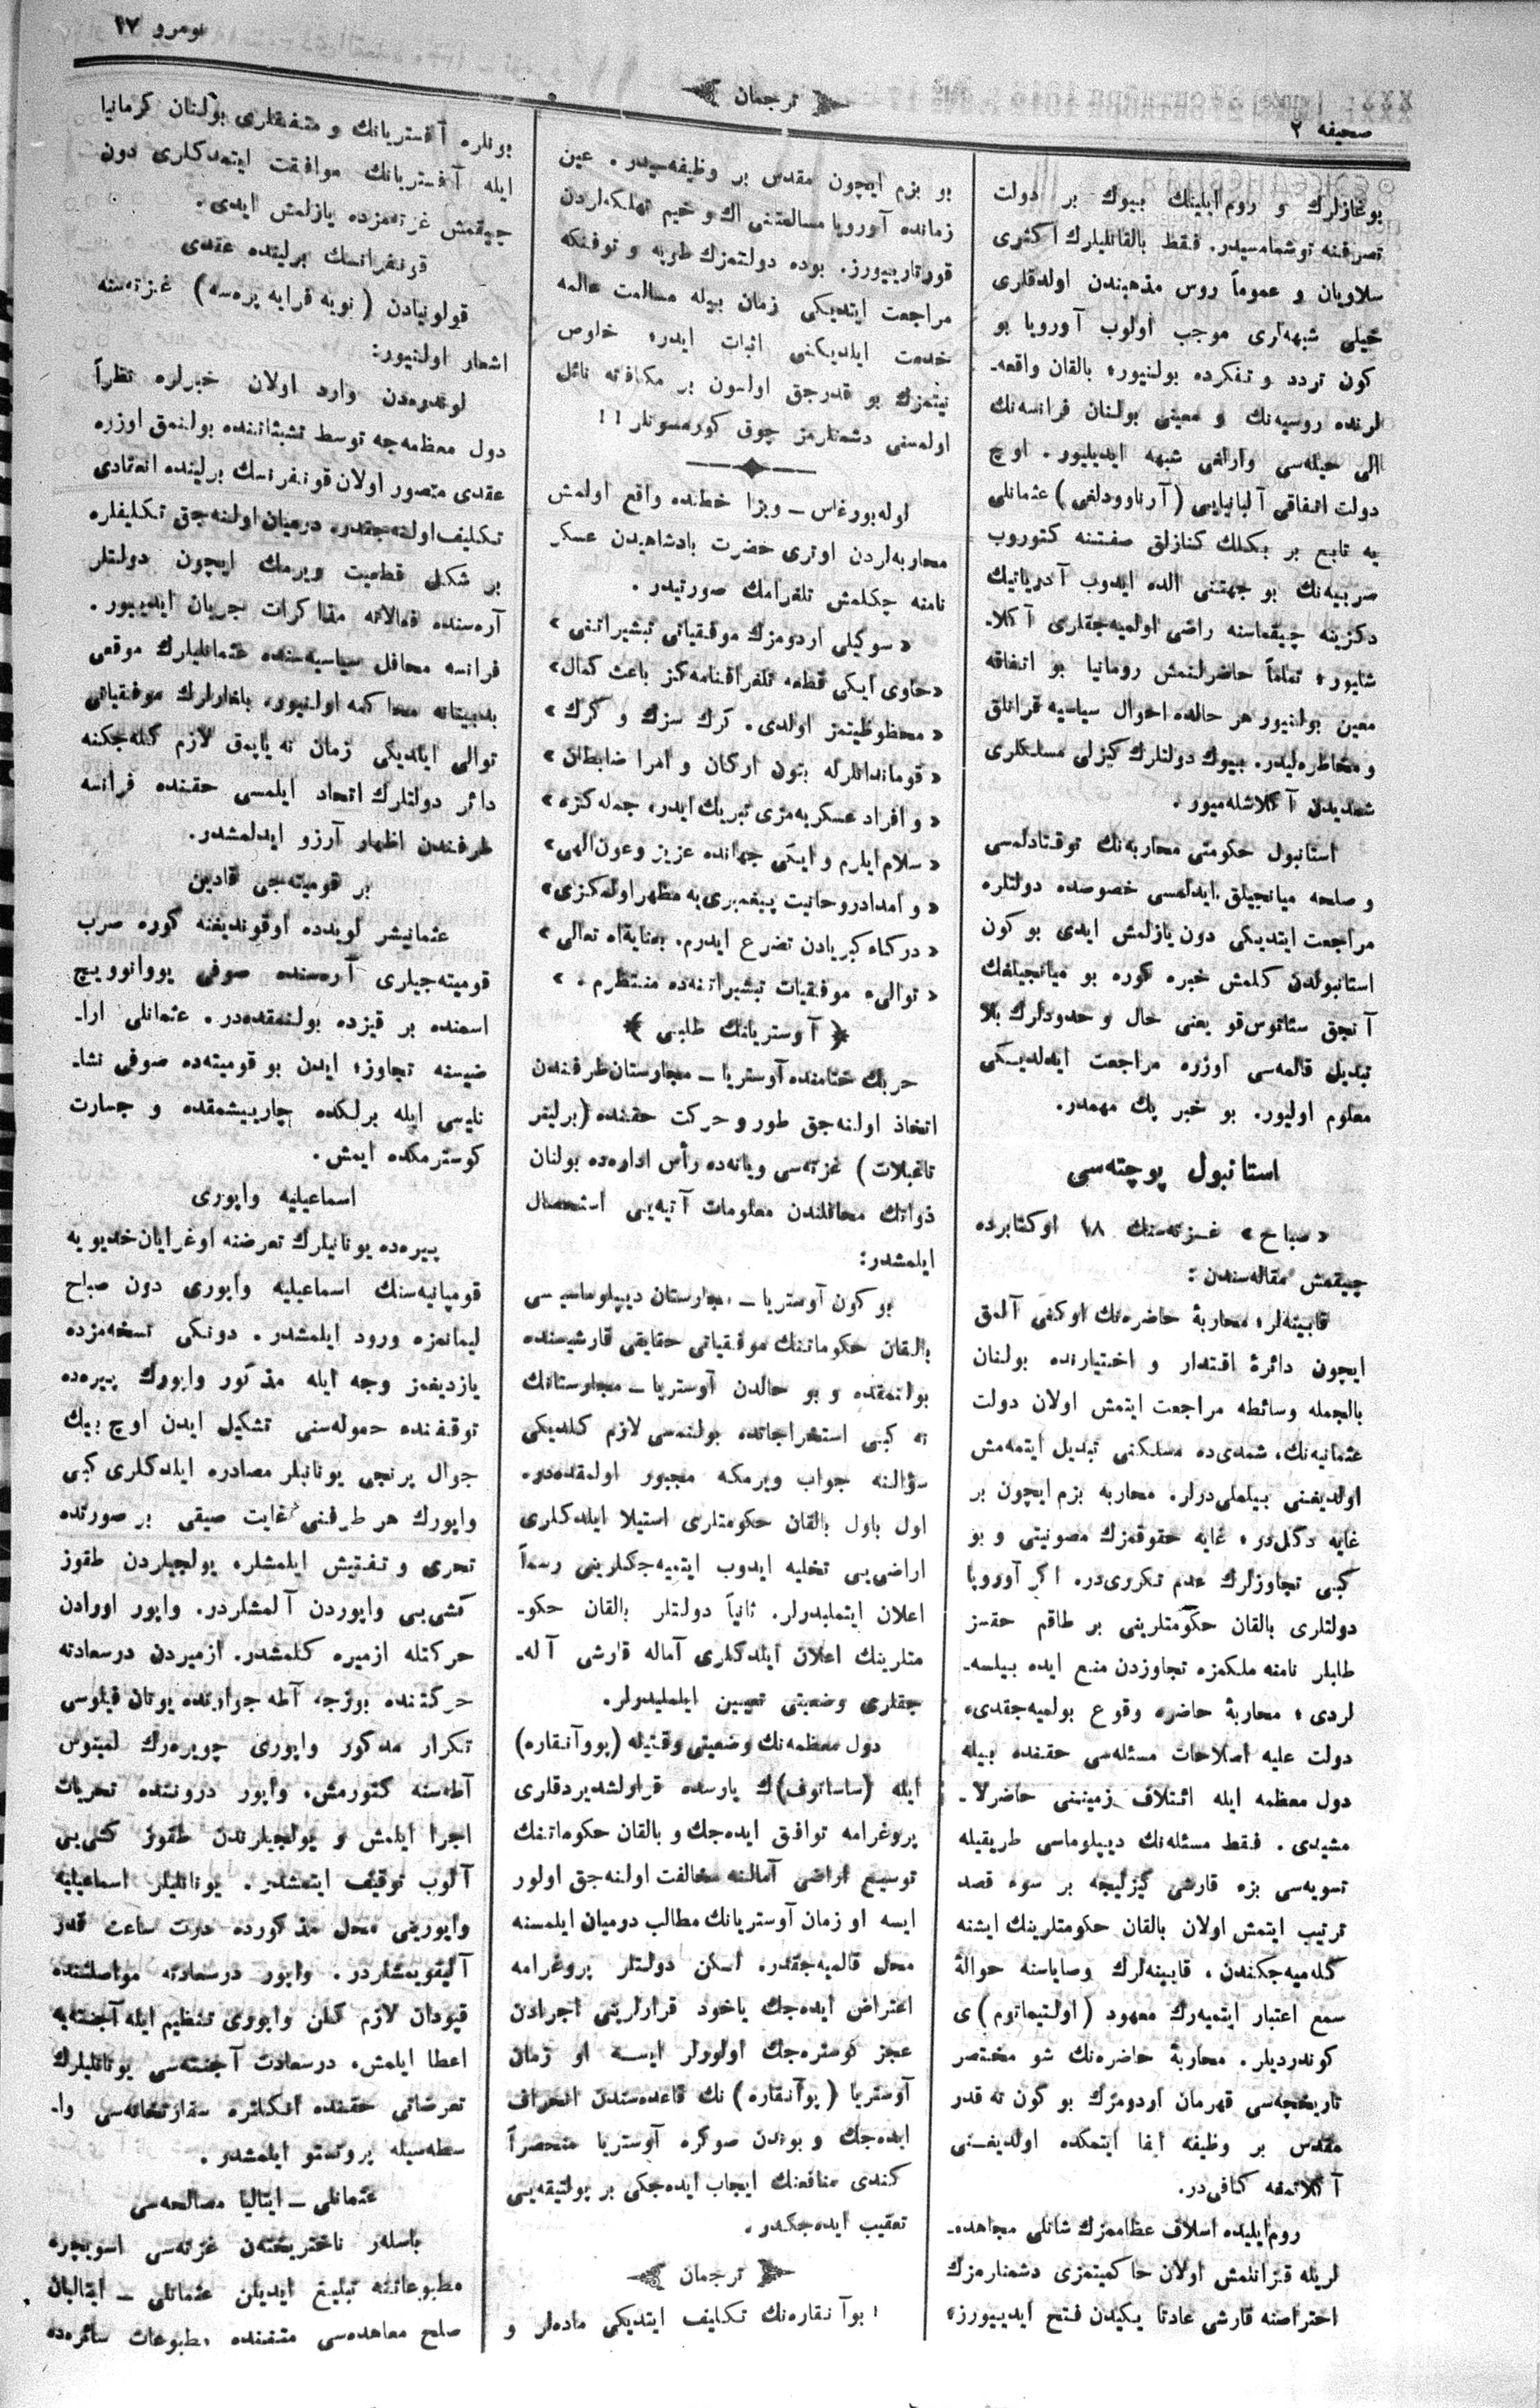 صحیفه ۲
ترجمان
نومرو ١٧
بوغازلرك و روم‌ایلینك بیوك بر دولت
تصرفنه توشمامسیدر. فقط بالقانلیلرك اكثری
سلاویان و عموماً روس مذهبندن اولدقلری
خیلی شبهه‌لری موجب اولوب آوروپا بو
كون تردد و تفكرده بولنیور، بالقان واقعه‌ـ
لرنده روسیه‌نك و معینی بولنان فرانسه‌نك
الی حیله‌سی وارلغی شبهه ایدیلیور. اوچ
دولت اتفاقی آلبانیایی (آرناوودلغی) عثمانلی
یه تابع بر بكلك كنازلق صفتنه كتوروب
صربیه‌نك بو جهتنی الده ایدوب آدریاتیك
دكزینه چیقماسنه راضی اولمیه‌جقلری آكلاـ
شلیور، تماماً حاضرلنمش رومانیا بو اتفاقه
معین بولنیور هر حالده احوال سیاسیه قرانلق
و مخاطره‌لیدر. بیوك دولتلرك كیزلی مسلكلری
شمدیدن آكلاشله‌میور.
استانبول حكومتی محاربه‌نك توقتادلمسی
و صلحه میانجیلق ایدلمسی خصوصده دولتلره
مراجعت ایتدیكی دون یازلمش ایدی بو كون
استانبولدن كلمش خبره كوره بو میانجیلغك
آنجق ستاتوس‌قو یعنی حال و حدودلرك بلا
تبدیل قالمه‌سی اوزره مراجعت ایدلدیـكی
معلوم اولیور. بو خبر پك مهمدر.
استانبول پوچته‌سی
«صباح» غـزته‌سنك ١٨ اوكتابرده
چیقمش مقاله‌سندن:
قابینه‌لر، محاربۀ حاضره‌نك اوكنی آلمق
ایچون دائرۀ اقتدار و اختیارنده بولنان
بالجمله وسائطه مراجعت ایتمش اولان دولت
عثمانیه‌نك، شمدی‌ده مسلكنی تبدیل ایتمه‌مش
اولدیغنی بیلملی‌درلر. محاربه بزم ایچون بر
غایه دكل‌در، غایه حقوقمزك مصونیتی و بو
كبی تجاوزلرك عدم تكرری‌در. اكر آوروپا
دولتلری بالقان حكومتلرینی بر طاقم حقسز
طلبلر نامنه ملكمزه تجاوزدن منع ایده بیلسه‌ـ
لردی، محاربۀ حاضره وقوع بولمیه‌جقدی،
دولت علیه اصلاحات مسئله‌سی حقنده بیله
دول معظمه ایله ائتلاف زمیننی حاضرلاـ
مشیدی. فقط مسئله‌نك دیپلوماسی طریقیله
تسویه‌سی بزه قارشی كیزلیجه بر سوء قصد
ترتیب ایتمش اولان بالقان حكومتلرینك ایشنه
كله‌میه‌جكندن، قابینه‌لرك وصایاسنه حوالۀ
سمع اعتبار ایتمیه‌رك معهود (اولتیماتوم)ی
كوندردیلر. محاربۀ حاضره‌نك شو مختصر
تاریخچه‌سی قهرمان اردومزك بو كون نه قدر
مقدس بر وظیفه ایفا ایتمكده اولدیغـنی
آكلاتمغه كافی‌در.
روم‌ایلیده اسلاف عظاممزك شانلی مجاهده‌ـ
لریله قزانلمش اولان حاكمیتمزی دشمنلرمزك
احتراصنه قارشی عادتا یكیدن فتح ایدییورز،
بو بزم ایچون مقدس بر وظیفه‌سیدر. عین
زمانده آوروپا مسالمتنی اك وخیم تهلكه‌لردن
قورتارییورز. بوده دولتمزك طوپه و توفنكه
مراجعت ایتدیكی زمان بیله مسالمت عالمه
خدمت ایلدیكنی اثبات ایدر، خلوص
نیتمزك بو قدرجق اولسون بر مكافاته نائل
اولمسنی دشمنلرمز چوق كورمسونلر!!
اوله‌بورغاس ــ ویزا خطنده واقع اولمش
محاربه‌لردن اوتری حضرت پادشاهیدن عسكر
نامنه چكلمش تلغرامك صورتیدر.
«سوكیلی اردومزك موفقیاتی تبشیراتنی»
«حاوی ایكی قطعه تلغرافنامه‌كز باعث كمال»
«محظوظیتمز اولدی. كرك سزك و كرك»
«قوماندانلرله بتون اركان و امرا ضابطان»
«و افراد عسكریه‌مزی تبریك ایدر، جمله‌كزه»
«سلام ایلرم و ایكی جهانده عزیز و عون الهی»
«و امداد روحانیت پیغمبری‌یه مظهر اوله‌كزی»
«دركاه كبریادن تضرع ایدرم. بعنایة‌اه تعالی»
«توالیء موفقیات تبشیراتنه‌ده منتظرم.»
﴿ آوستریانك طلبی ﴾
حربك ختامنده آوستریا ــ مجارستان طرفندن
اتخاذ اولنه‌جق طور و حركت حقنده (برلینر
تاغبلات) غزته‌سی ویانه‌ده رأس اداره‌ده بولنان
ذواتك محافلندن معلومات آتیه‌یی استحصال
ایلمشدر:
بو كون آوستریا ــ مجارستان دیپلوماسیـسی
بالقان حكوماتنك موفقیاتی حقایقی قارشیسنده
بولنمقده و بو حالدن آوستریا ــ مجارستانك
نه كبی استخراجاتده بولنمسی لازم كلدیكی
سؤالنه جواب ویرمكه مجبور اولمقده‌در.
اول باول بالقان حكومتلری استیلا ایلدكلری
اراضی‌یی تخلیه ایدوب ایتمیه‌جكلرینی رسماً
اعلان ایتملیدرلر. ثانیاً دولتلر بالقان حكوـ
متلرینك اعلان ایلدكلری آماله قارشی آله‌ـ
جقلری وضعیتی تعیین ایلملیدرلر.
دول معظمه‌نك وضعیتی وقتیله (پووآنقاره)
ایله (ساسانوف)ك پارسده قرارلشدیردقلری
پروغرامه توافق ایده‌جك و بالقان حكوماتنك
توسیع اراضی آمالنه مخالفت اولنه‌جق اولور
ایسه او زمان آوستریانك مطالب درمیان ایلمسنه
محل قالمیه‌جقدر. لسكن دولتلر پروغرامه
اعتراض ایده‌جك یاخود قرارلرینی اجرادن
عجز كوستره‌جك اولورلر ایسـه او زمان
آوستریا (پوآنقاره) نك قاعده‌سندن انحراف
ایده‌جك و بوندن صوكره آوستریا منحصراً
كندی منافعنك ایجاب ایده‌جكی بر پولتیقه‌یی
تعقیب ایده‌جكدر.
ترجمان
پوآنقاره‌نك تكلیف ایتدیكی ماده‌لر و
بونلره آفستریانك و متفقلری بولنان كرمانیا
ایله آفستریانك موافقت ایتمدكلری دون
چیقمش غزته‌مزده یازلمش ایدی.
قونفرانسك برلینده عقدی
قولونیادن (نویه فرایه پره‌سه) غزته‌سنه
اشعار اولنیور:
لوندره‌دن وارد اولان خبرلره نظراً
دول معظمه‌جه توسط تشبثاتنده بولنمق اوزره
عقدی متصور اولان قونفرنسك برلینده انعقادی
تكلیف اولنه‌جقدر. درمیان اولنه‌جق تكلیفلره
بر شكل قطعیت ویرمك ایچون دولتلر
آره‌سنده فعالانه مذاكرات جریان ایدییور.
فرانسه محافل سیاسیه‌سنده عثمانلیلرك موقعی
بدبینانه محاكمه اولنیور، بلغارلرك موفقیاتی
توالی ایلدیكی زمان نه یاپمق لازم كله‌جكنه
دائر دولتلرك اتحاد ایلمسی حقنده فرانسه
طرفندن اظهار آرزو ایدلمشدر.
بر قومیته‌جی قادین
عثمانیشر لویدده اوقوندیغنه كوره صرب
قومیته‌جیلری آره‌سنده صوفی یووانوویچ
اسمنده بر قیزده بولنمقده‌در. عثمانلی اراـ
ضیسنه تجاوز، ایدن بو قومیته‌ده صوفی نشاـ
نلیسی ایله برلكده چارپیشمقده و جسارت
كوسترمكده ایمش.
اسماعیلیه واپوری
پیره‌ده یونانیلرك تعرضنه اوغرایان خدیویه
قومپانیه‌سنك اسماعیلیه واپوری دون صباح
لیمانمزه ورود ایلمشدر. دونكی نسخه‌مزده
یازدیغمز وجه ایله مذكور واپورك پیره‌ده
توقفنده حموله‌سنی تشكیل ایدن اوچ بیك
جوال پرنجی یونانیلر مصادره ایلدكلری كبی
واپورك هر طرفنی غایت صیقی بر صورتده
تحری و تفتیش ایلمشلر، یولجیلردن طقوز
كشی‌یی واپوردن آلمشلردر. واپور اورادن
حركتله ازمیره كلمشدر. ازمیردن درسعادته
حركتنده بوزجه آطه جوارنده یونان فیلوسی
تكرار مذكور واپوری چویره‌رك لمینوس
آطه‌سنه كتورمش، واپور دروننده تحریات
اجرا ایلمش و یولجیلرندن طقوز كشی‌یی
آلوب توقیف ایتمشدر. یونانلیلر اسماعیلیه
واپورینی محل مذكورده درت ساعت قدر
آلیقویمشلردر. واپور درسعادته مواصلتنده
قپودان لازم كلن راپوری تنظیم ایله آجنته‌یه
اعطا ایلمش، درسعادت آجنته‌سی یونانلیلرك
تعرضاتی حقنده انكلتره سفارتخانه‌سی واـ
سطه‌سیله پروتستو ایلمشدر.
عثمانلی ــ ایتالیا مصالحه‌سی
باسله‌ر ناختریختهن غزته‌سی اسویچره
مطبوعاتنه تبلیغ ایدیلن عثمانلی ــ ایتالیان
صلح معاهده‌سی متننده مطبوعات سائره‌ده